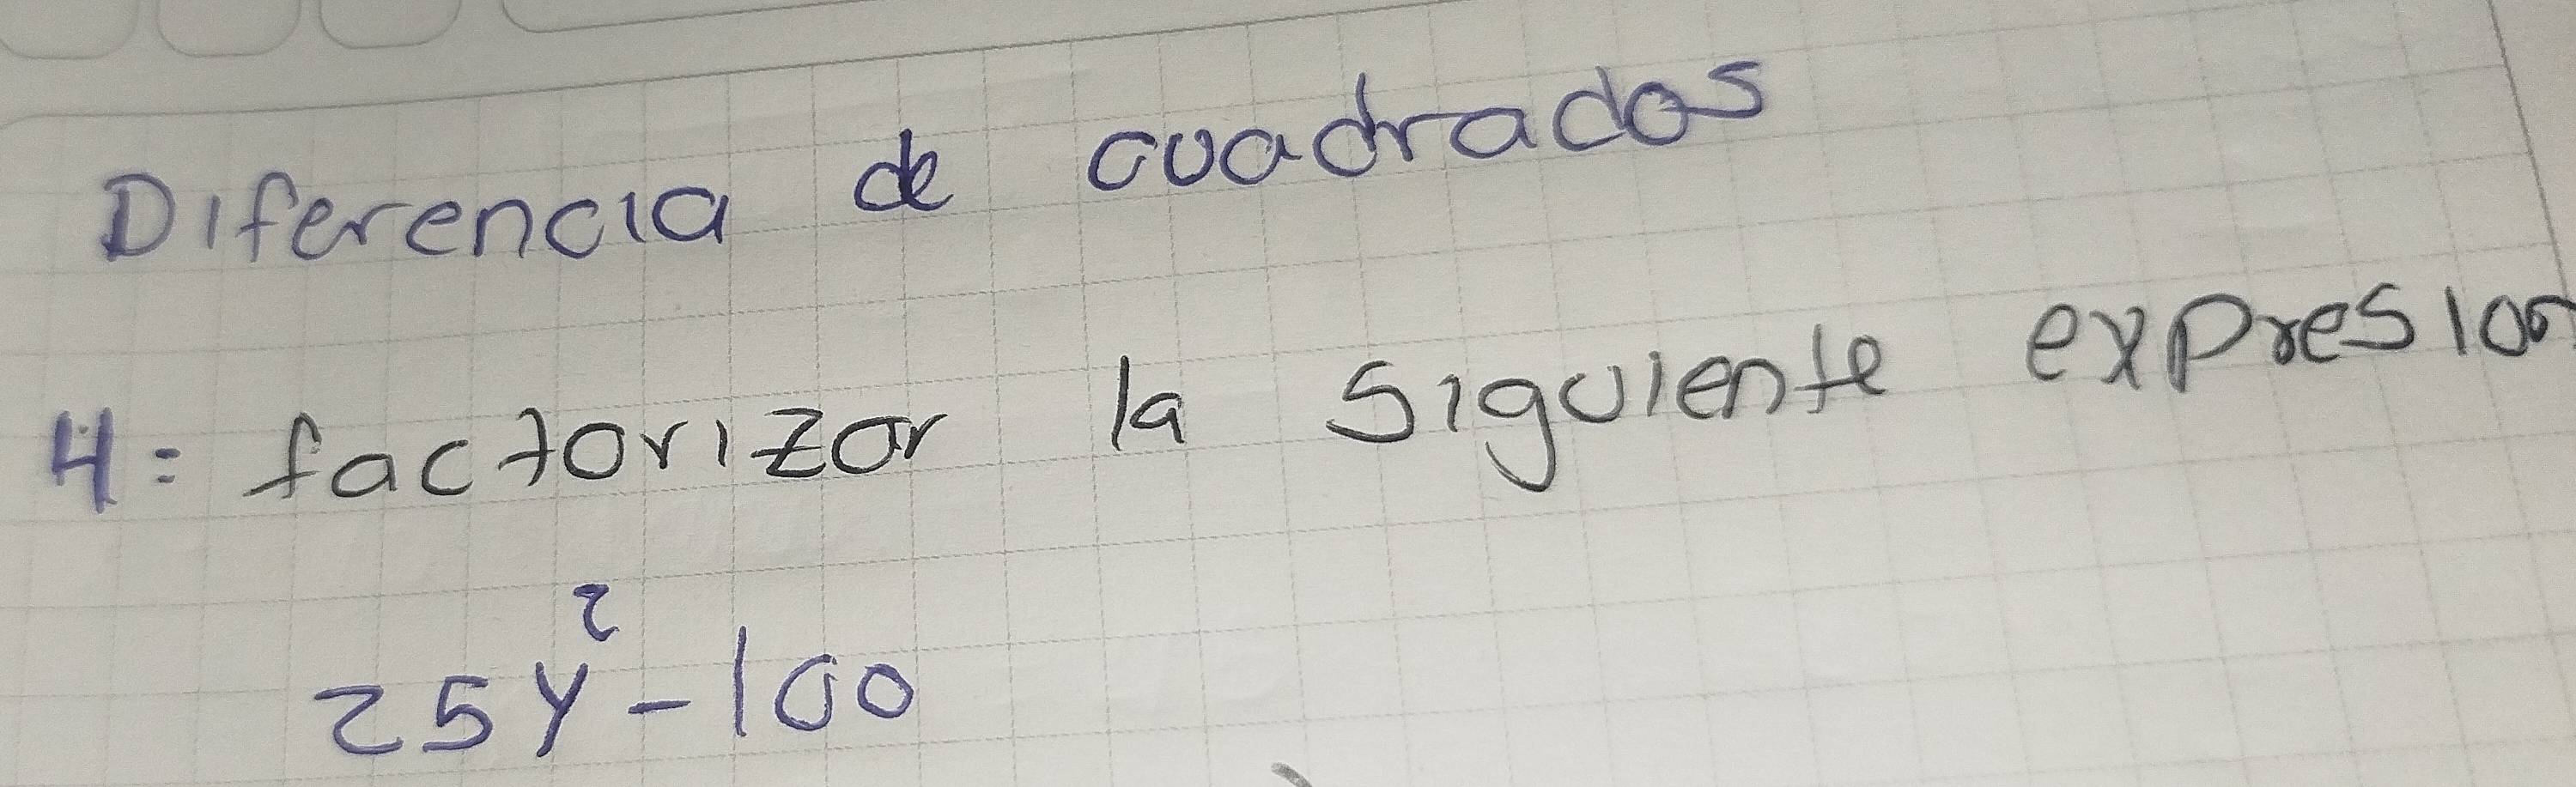 Diferencia de cuadrados
4= factorizar la siguiente expresion
25y² - 100